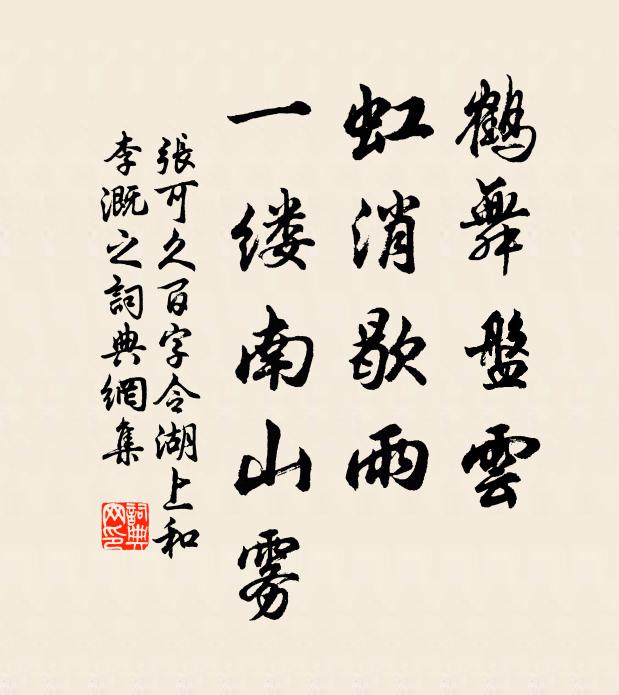 鶴舞盤雲
虹消歇雨
一缕南山雾
張可久百字令湖上和
李溉之詞典網集
詞典网印